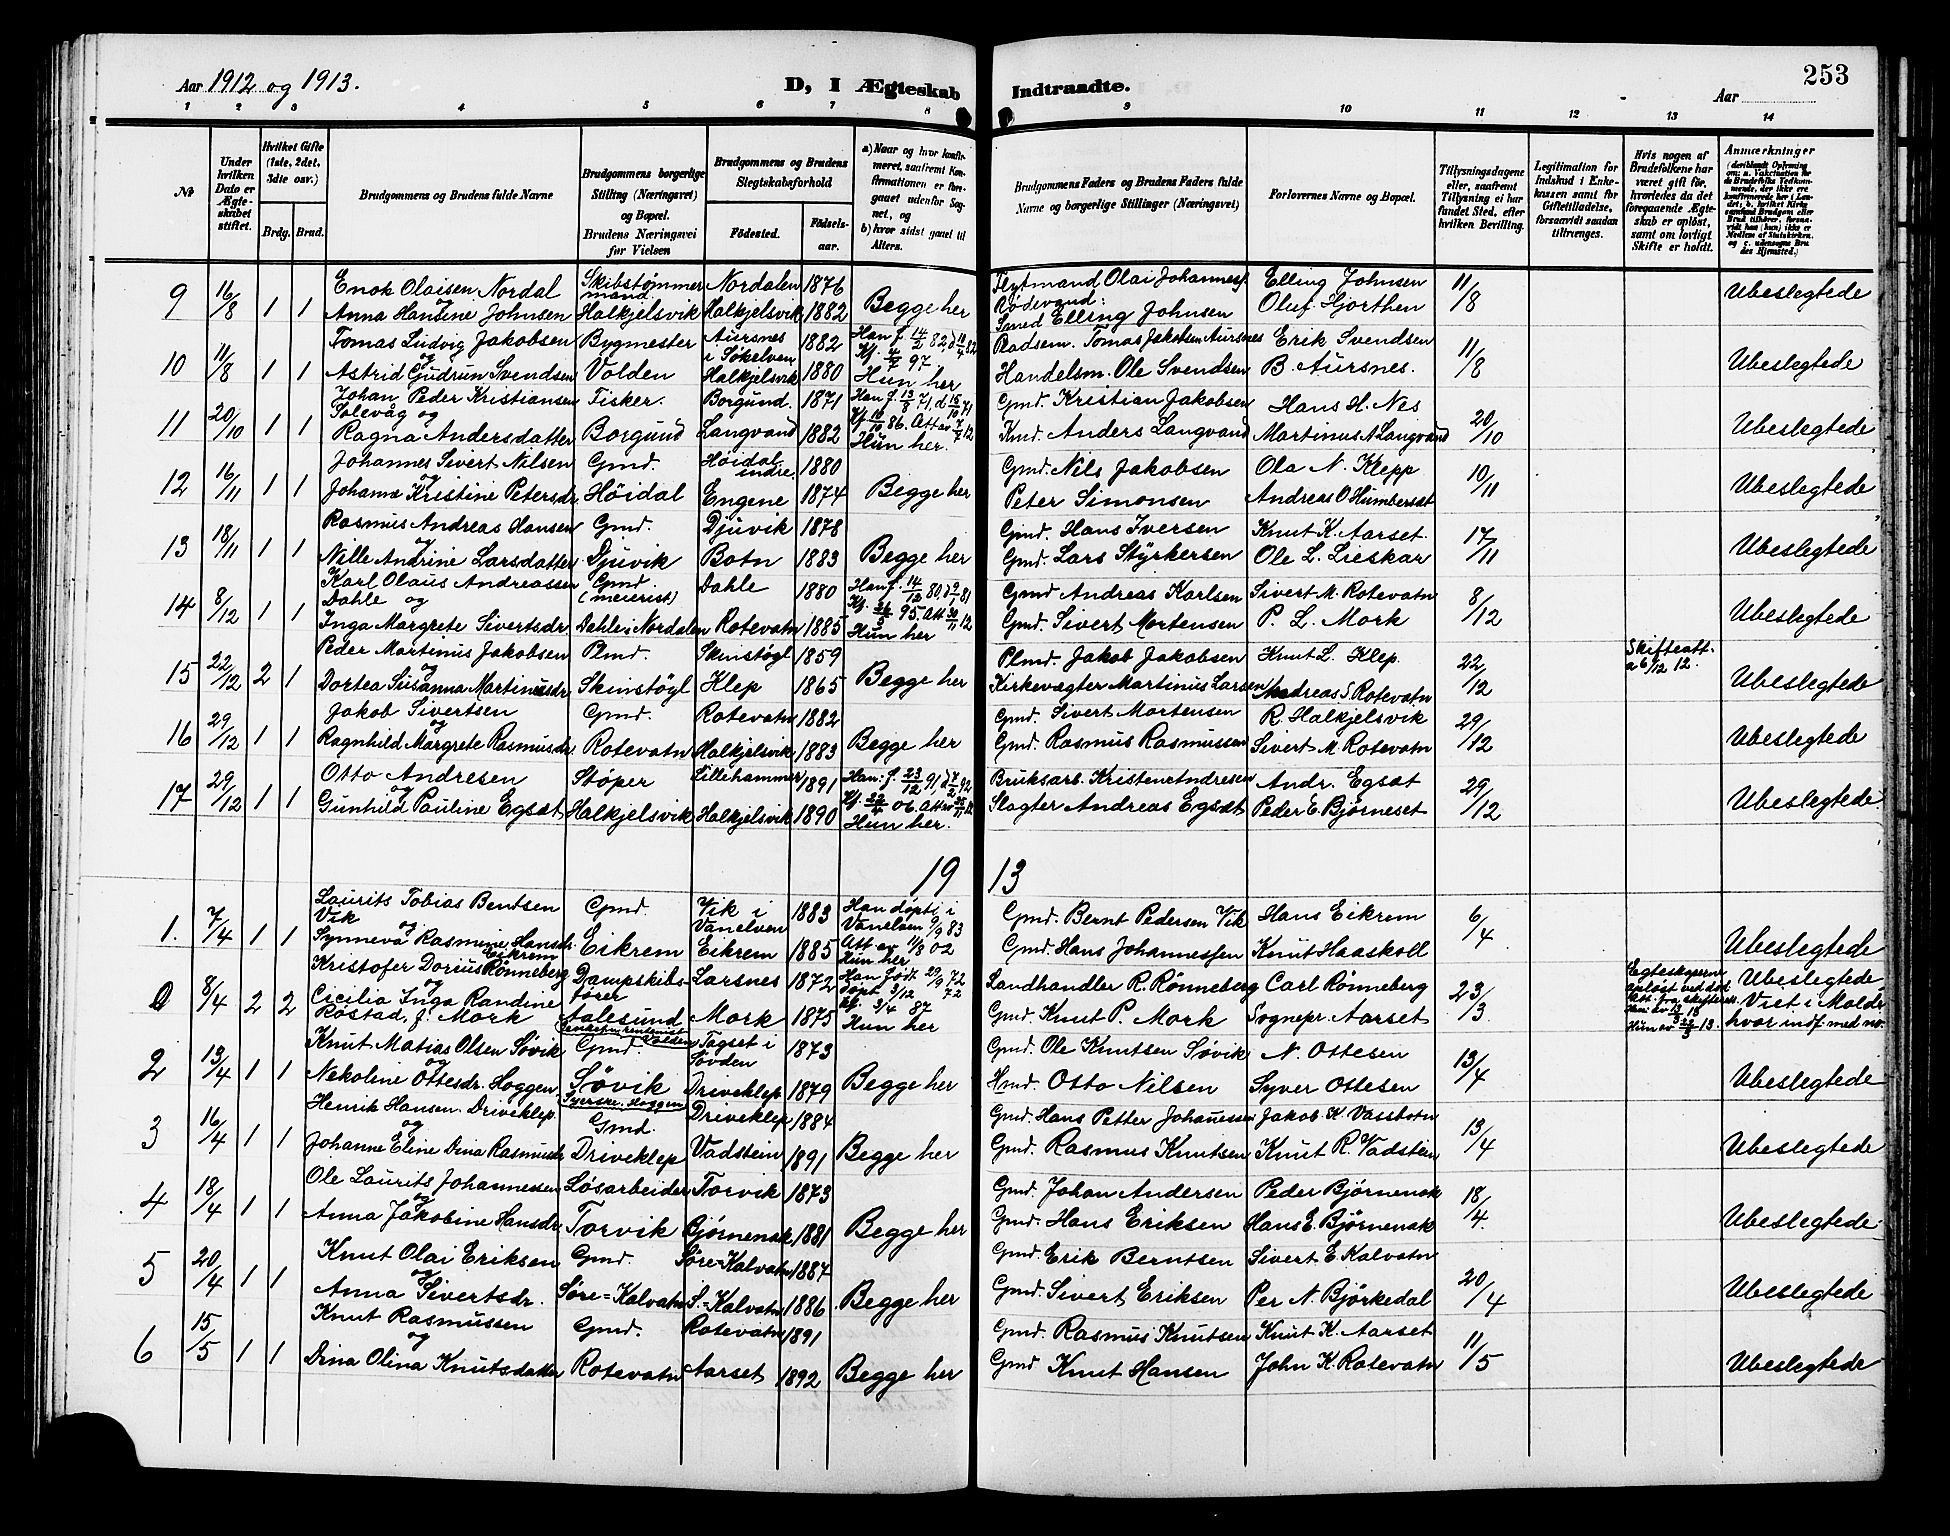 253
Aar 1912 og 1913.
D, I Ægteskab Indtraadte.
Aar
1 2 3 4 5 6 7 8 9 10 11 12 13 14
№
Under hvilken Dato er Ægteskabet stiftet.
Hvilket Gifte (1ste, 2det, 3die osv.)
Brdg. Brud.
Brudgommens og Brudens fulde Navne
Brudgommens borgerlige Stilling (Næringsvei) og Bopæl. Brudens Næringsvei før Vielsen
Brudgommens og Brudens Slegtskabsforhold
Fødested. Fødselsaar.
a) Naar og hvor konfirmeret, saafremt Konfirmationen er foregaaet udenfor Sognet, og b) hvor sidst gaaet til Alters.
Brudgommens Faders og Brudens Faders fulde Navne og borgerlige Stillinger (Næringsvei)
Forlovernes Navne og Bopæl.
Tillysningsdagene eller, saafremt Tillysning ei har fundet Sted, efter hvilken Bevilling.
Legitimation for Indskud i Enkekassen samt for Giftetilladelse, forsaavidt saadan tiltrænges.
Hvis nogen af Brudefolkene har været gift før, hvorledes da det foregaaende Ægteskab er opløst, samt om lovligt Skifte er holdt.
Anmærkninger
9 16/8 1 1 Enok Olaisen Nordal og Skibstømmermand Nordalen 1876 Begge her Elling Johnsen 11/8 Ubeslegtede
Anna Hansine Johnsen Halkjelsvik Halkjelsvik 1882 Smed Elling Johnsen Oluf Hjorthen
10 11/8 1 1 Tomas Ludvig Jakobsen og Bygmester Aursnes i Søkelven 1882 Han f. 14/2 82 Pladsem. Tomas Jakobsen Aursnes Erik Svendsen 11/8 Ubeslegtede
Astrid Gudrun Svendsen Volden Halkjelsvik 1880 Hun her Handelsm. Ole Svendsen B. Aursnes.
11 20/10 1 1 Johan Peder Kristiansen Solevåg og Fisker. Borgund. 1871 Han f. 13/8 71, d 15/10 71 Gmd. Kristian Jakobsen Hans H. Nes 20/10 Ubeslegtede
Ragna Andersdatter Borgund Langvand 1882 Kf 10/10 86. Att av 7/7 12 Hun her. Kmd. Anders Langvand Martinus A Langvand
12 16/11 1 1 Johannes Sivert Nilsen og Gmd. Høidal indre 1880 Begge her Gmd. Nils Jakobsen Ola N. Klepp 10/11 Ubeslegtede
Johanna Kristine Petersdr. Høidal Engene 1874 Peter Simonsen Andreas O Humberset
13 18/11 1 1 Rasmus Andreas Hansen og Gmd. Djuvik 1878 Begge her Gmd. Hans Iversen Knut K. Aarset 17/11 Ubeslegtede
Nille Andrine Larsdatter Djuvik Botn 1883 Gmd. Lars Styrkersen Ole L. Lieskar
14 8/12 1 1 Karl Olaus Andreassen Dahle og Gmd. (meierist) Dahle 1880 Han f. 14/12 80, d 9/1 81 Gmd Andreas Karlsen Sivert M. Rotevatn 8/12 Ubeslegtede
Inga Margrete Sivertsdr. Dahle i Nordalen Rotevatn 1885 Hun her Gmd. Sivert Mortensen P. L. Mork
15 22/12 2 1 Peder Martinus Jakobsen og Plmd. Skinstøgl 1859 Begge her Plmd. Jakob Jakobsen Knut L. Klep. 22/12 Skifteatt. a 6/12 12. Ubeslegtede
Dortea Susanna Martinusdr. Skinstøgl Klep 1865 Kirkevægter Martinus Larsen Andreas S. Rotevatn
16 29/12 1 1 Jakob Sivertsen og Gmd. Rotevatn 1882 Begge her Gmd. Sivert Mortensen R. Halkjelsvik 29/12 Ubeslegtede
Ragnhild Margrete Rasmusdr. Rotevatn Halkjelsvik 1883 Gmd. Rasmus Rasmussen Sivert M. Rotevatn
17 29/12 1 1 Otto Andresen og Støper Lillehammer 1891 Han: f. 23/12 91, d 7/2 92 Bruksarb. Kristen Andresen Andr. Egsæt 29/12 Ubeslegtede
Gunhild Pauline Egsæt Halkjelsvik Halkjelsvik 1890 Hun her. Slagter Andreas Egsæt Peder E. Bjørneset
1913
1. 7/4 1 1 Laurits Tobias Bentsen Vik og Gmd. Vik i Vanelven 1883 Han døpt i Vanelven 9/9 83 Gmd. Bernt Pedersen Vik Hans Eikrem 6/4 Ubeslegtede
Synneva Rasmine Hansdr. Eikrem Eikrem Eikrem 1885 Att av 11/8 02 Hun her Gmd. Hans Johannessen Knut Haaskoll
0 8/4 2 2 Kristofer Dorius Rønneberg og Dampskibsfører Larsnes 1872 Han født 29/9 72 døpt 3/12 72 Landhandler R. Rønneberg Carl Rønneberg 23/3 Egteskaperne opløst ved død Ubeslegtede Viet i Molde
Cicilia Inga Randine Røstad, f. Mork Aalesund Mork 1875 kf. 3/4 87 Hun her Gmd. Knut P. Mork Sognepr. Aarset hvor indf. med no.
2 13/4 1 1 Knut Matias Olsen Søvik og Gmd. Tagset i Søvden 1873 Begge her Gmd. Ole Knutsen Søvik N. Ottesen 13/4 Ubeslegtede
Nekoline Ottesdr. Hoggen Søvik Driveklep 1879 Hmd. Otto Nilsen Syver Ottesen
3 16/4 1 1 Henrik Hansen Driveklep og Gmd. Driveklep 1884 Begge her Gmd. Hans Petter Johansen Jakob K. Vassbotn 13/4 Ubeslegtede
Johanne Eline Dina Rasmusdr Driveklep Vadstein 1891 Gmd. Rasmus Knutsen Knut R. Vadstein
4 18/4 1 1 Ole Laurits Johannessen og Løsarbeider Torvik 1873 Begge her Gmd. Johan Andersen Peder Bjørnenak 18/4 Ubeslegtede
Anna Jakobine Hansdr. Torvik Bjørnenak 1881 Gmd. Hans Eriksen Hans E. Bjørnenak
5 20/4 1 1 Knut Olai Eriksen og Gmd. Søre=Kalvatn 1887 Begge her Gmd. Erik Berntsen Sivert E Kalvatn 20/4 Ubeslegtede
Anna Sivertsdr. Søre=Kalvatn S.=Kalvatn 1886 Gmd. Sivert Eriksen Per N. Bjørkedal
6 15/5 1 1 Knut Rasmussen og Gmd. Rotevatn 1891 Begge her Gmd. Rasmus Knutsen Knut K. Aarset 11/5 Ubeslegtede
Dina Olina Knutsdatter Rotevatn Aarset 1892 Gmd Knut Hansen John K. Rotevatn